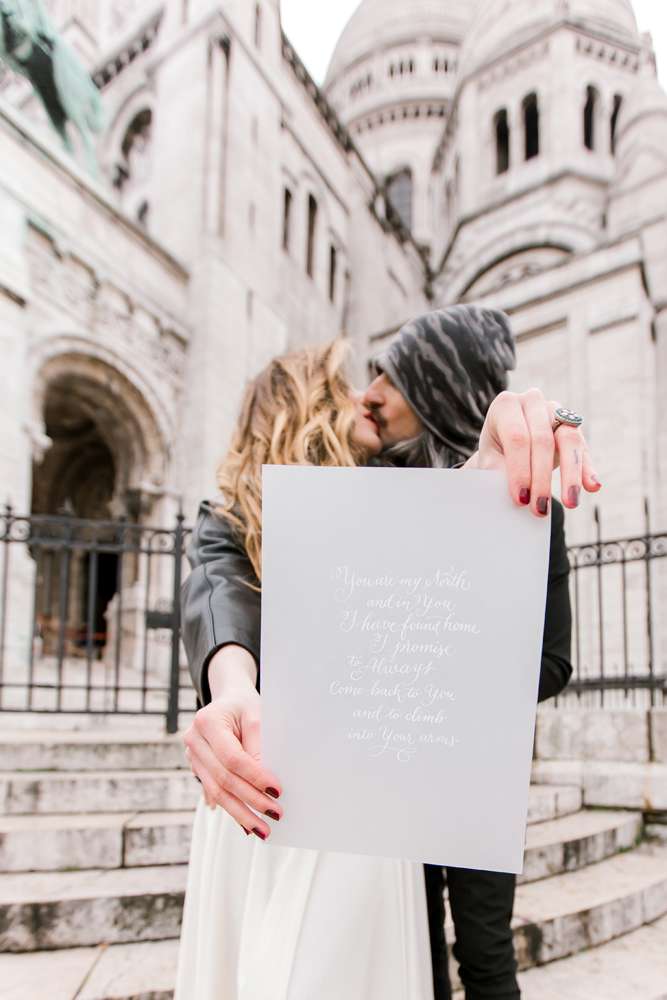 You are my North
and in You
I have found home
I promise
to Always
Come back to You
and to climb
into Your arms